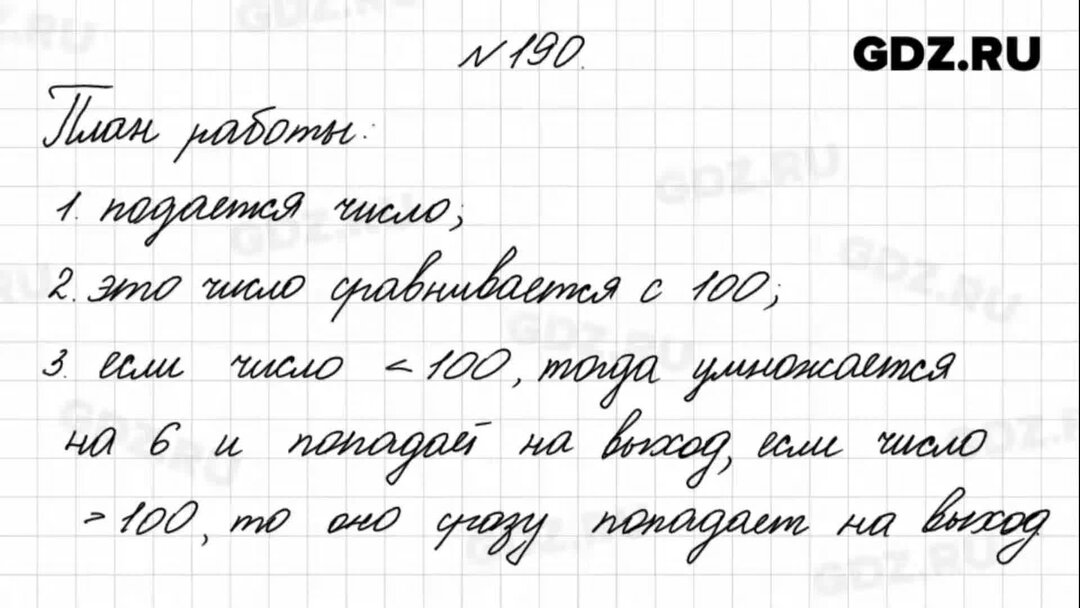 №190.
GDZ.RU
План работы:
1. подается число;
2. это число сравнивается с 100;
3. если число < 100, тогда умножается
на 6 и попадает на выход, если число
> 100, то оно сразу попадает на выход